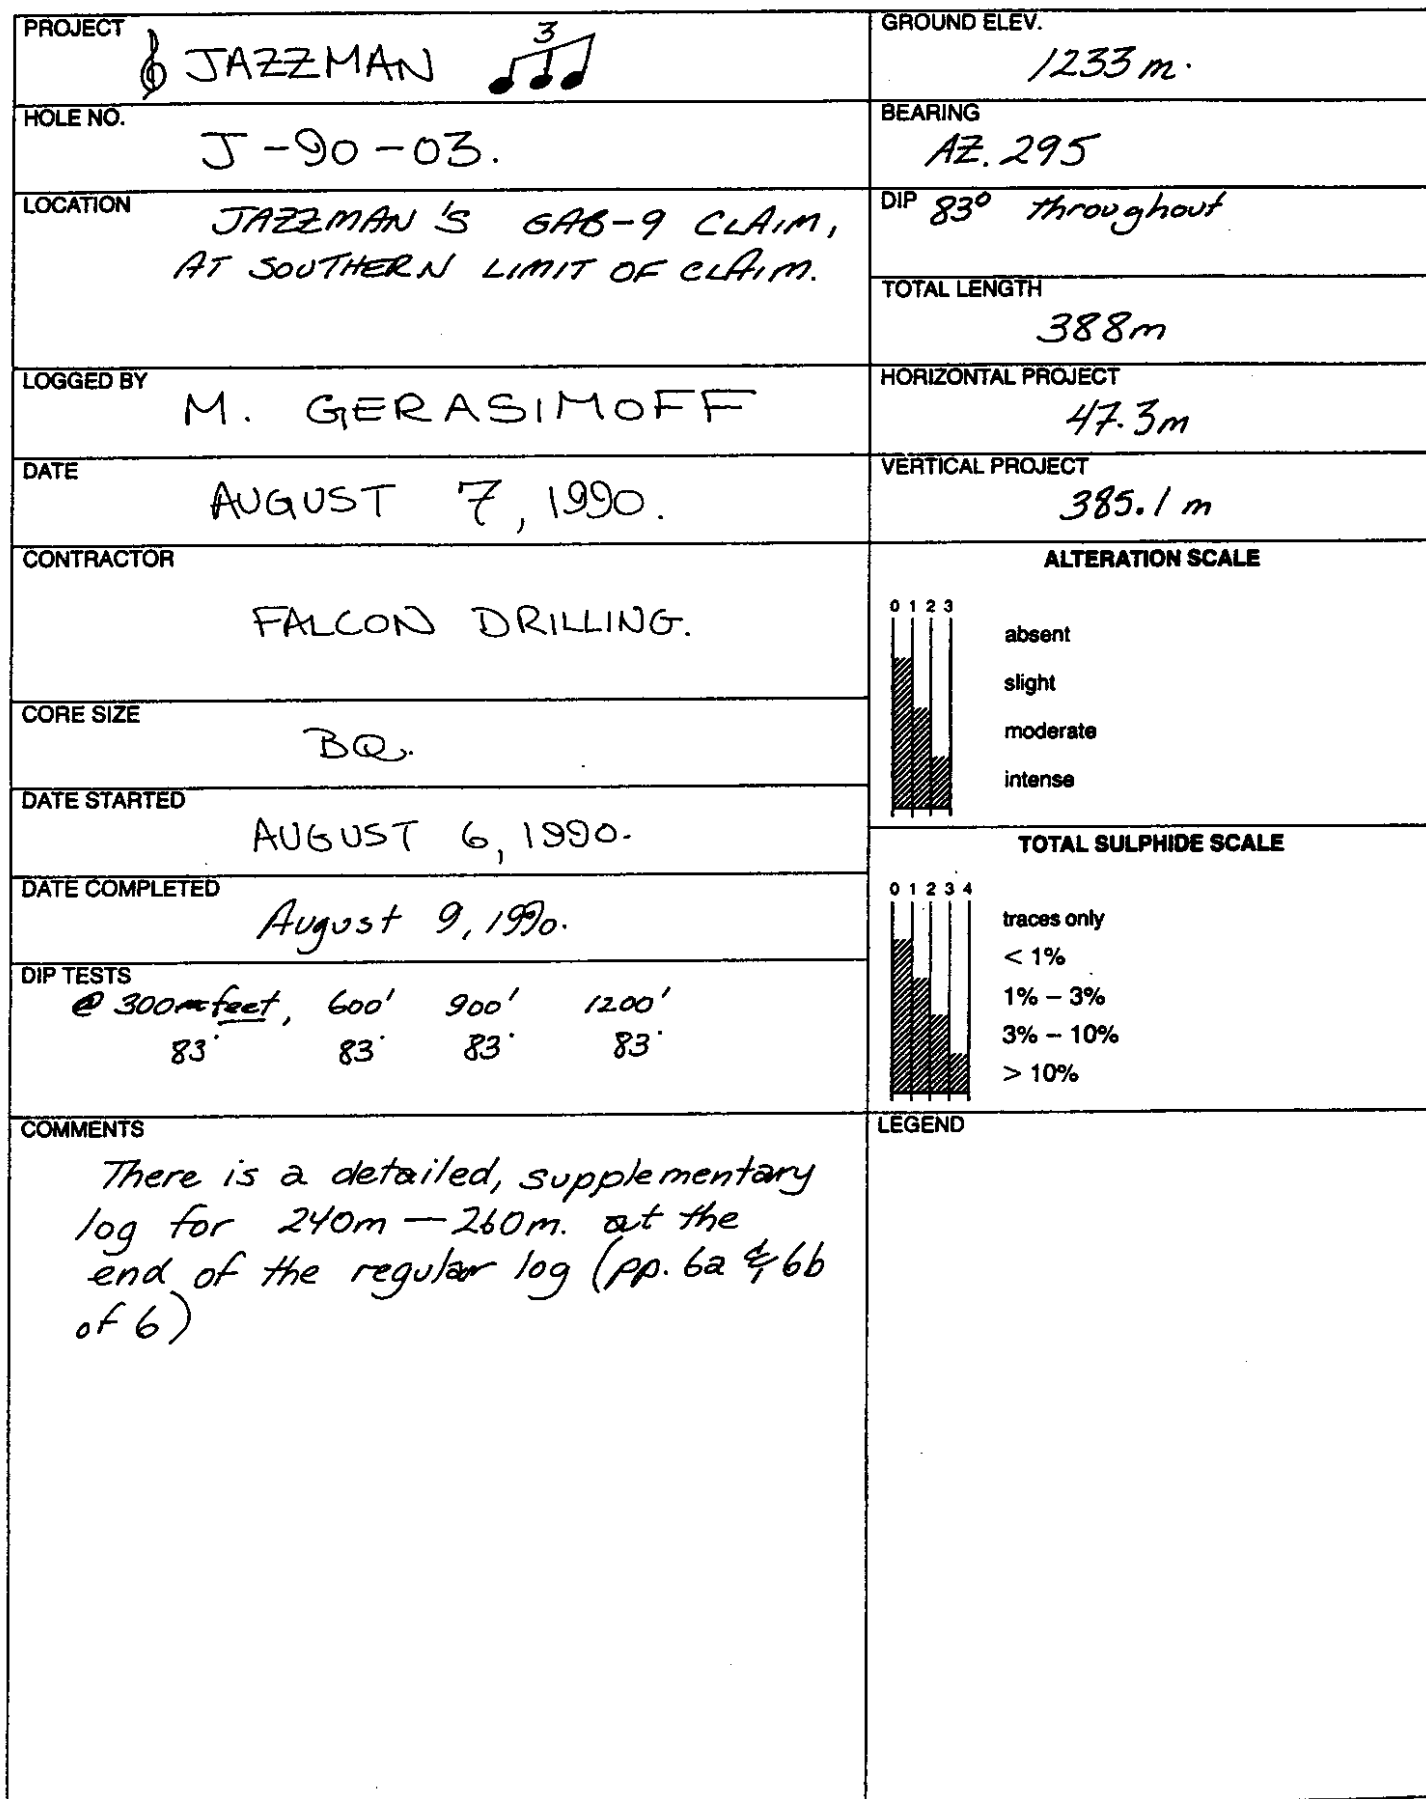 PROJECT
JAZZMAN 3
HOLE NO.
J-90-03.
LOCATION
JAZZMAN'S GAB-9 CLAIM,
AT SOUTHERN LIMIT OF CLAIM.
LOGGED BY
M. GERASIMOFF
DATE
AUGUST 7, 1990.
CONTRACTOR
FALCON DRILLING.
CORE SIZE
BQ.
DATE STARTED
AUGUST 6, 1990.
DATE COMPLETED
August 9, 1990.
DIP TESTS
@ 300 feet, 600' 900' 1200'
83° 83° 83° 83°
COMMENTS
There is a detailed, supplementary
log for 240m — 260m. at the
end of the regular log (pp. 6a & 6b
of 6)
GROUND ELEV.
1233 m.
BEARING
AZ. 295
DIP 83° throughout
TOTAL LENGTH
388m
HORIZONTAL PROJECT
47.3m
VERTICAL PROJECT
385.1 m
ALTERATION SCALE
0 1 2 3
absent
slight
moderate
intense
TOTAL SULPHIDE SCALE
0 1 2 3 4
traces only
< 1%
1% – 3%
3% – 10%
> 10%
LEGEND